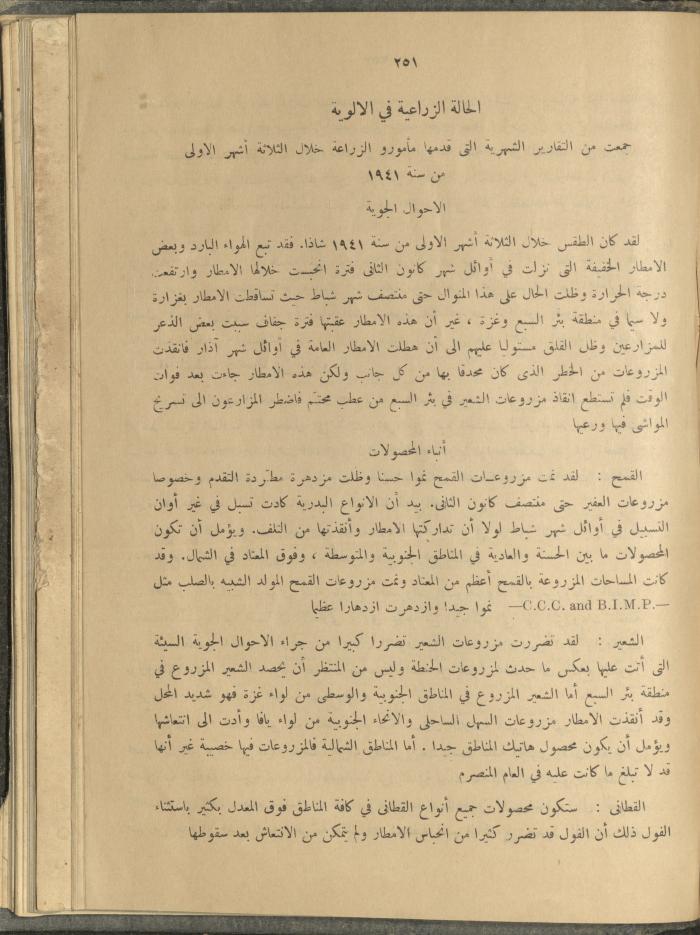 ٢٥١
الحالة الزراعية في الالوية
جمعت من التقارير الشهرية التى قدمها مأمورو الزراعة خلال الثلاثة أشهر الاولى
من سنة ١٩٤١
الاحوال الجوية
لقد كان الطقس خلال الثلاثة أشهر الاولى من سنة ١٩٤١ شاذا. فقد تبع الهواء البارد وبعض
الامطار الخفيفة التى نزلت في أوائل شهر كانون الثانى فترة انحبست خلالها الامطار وارتفعت
درجة الحرارة وظلت الحال على هذا المنوال حتى منتصف شهر شباط حيث تساقطت الامطار بغزارة
ولا سيما في منطقة بئر السبع وغزة ، غير أن هذه الامطار عقبتها فترة جفاف سببت بعض الذعر
للمزارعين وظل القلق مستوليا عليهم الى أن هطلت الامطار العامة في أوائل شهر آذار فانقذت
المزروعات من الخطر الذى كان محدقا بها من كل جانب ولكن هذه الامطار جاءت بعد فوات
الوقت فلم تستطع انقاذ مزروعات الشعير في بئر السبع من عطب محتم فاضطر المزارعون الى تسريح
المواشى فيها ورعيها
أنباء المحصولات
القمح : لقد نمت مزروعات القمح نموا حسنا وظلت مزدهرة مطردة التقدم وخصوصا
مزروعات العفير حتى منتصف كانون الثانى. بيد أن الانواع البدرية كادت تسبل في غير أوان
التسبيل في أوائل شهر شباط لولا أن تداركتها الامطار وأنقذتها من التلف. ويؤمل أن تكون
المحصولات ما بين الحسنة والعادية في المناطق الجنوبية والمتوسطة ، وفوق المعتاد في الشمال. وقد
كانت المساحات المزروعة بالقمح أعظم من المعتاد ونمت مزروعات القمح المولد الشبيه بالصلب مثل
—C.C.C. and B.I.M.P.— نموا جيدا وازدهرت ازدهارا عظيما
الشعير : لقد تضررت مزروعات الشعير تضررا كبيرا من جراء الاحوال الجوية السيئة
التى أتت عليها بعكس ما حدث لمزروعات الحنطة وليس من المنتظر أن يحصد الشعير المزروع في
منطقة بئر السبع أما الشعير المزروع في المناطق الجنوبية والوسطى من لواء غزة فهو شديد المحل
وقد أنقذت الامطار مزروعات السهل الساحلى والانحاء الجنوبية من لواء يافا وأدت الى انتعاشها
ويؤمل أن يكون محصول هاتيك المناطق جيدا . أما المناطق الشمالية فالمزروعات فيها خصيبة غير أنها
قد لا تبلغ ما كانت عليه في العام المنصرم
القطانى : ستكون محصولات جميع أنواع القطانى في كافة المناطق فوق المعدل بكثير باستثناء
الفول ذلك أن الفول قد تضرر كثيرا من انحباس الامطار ولم يتمكن من الانتعاش بعد سقوطها